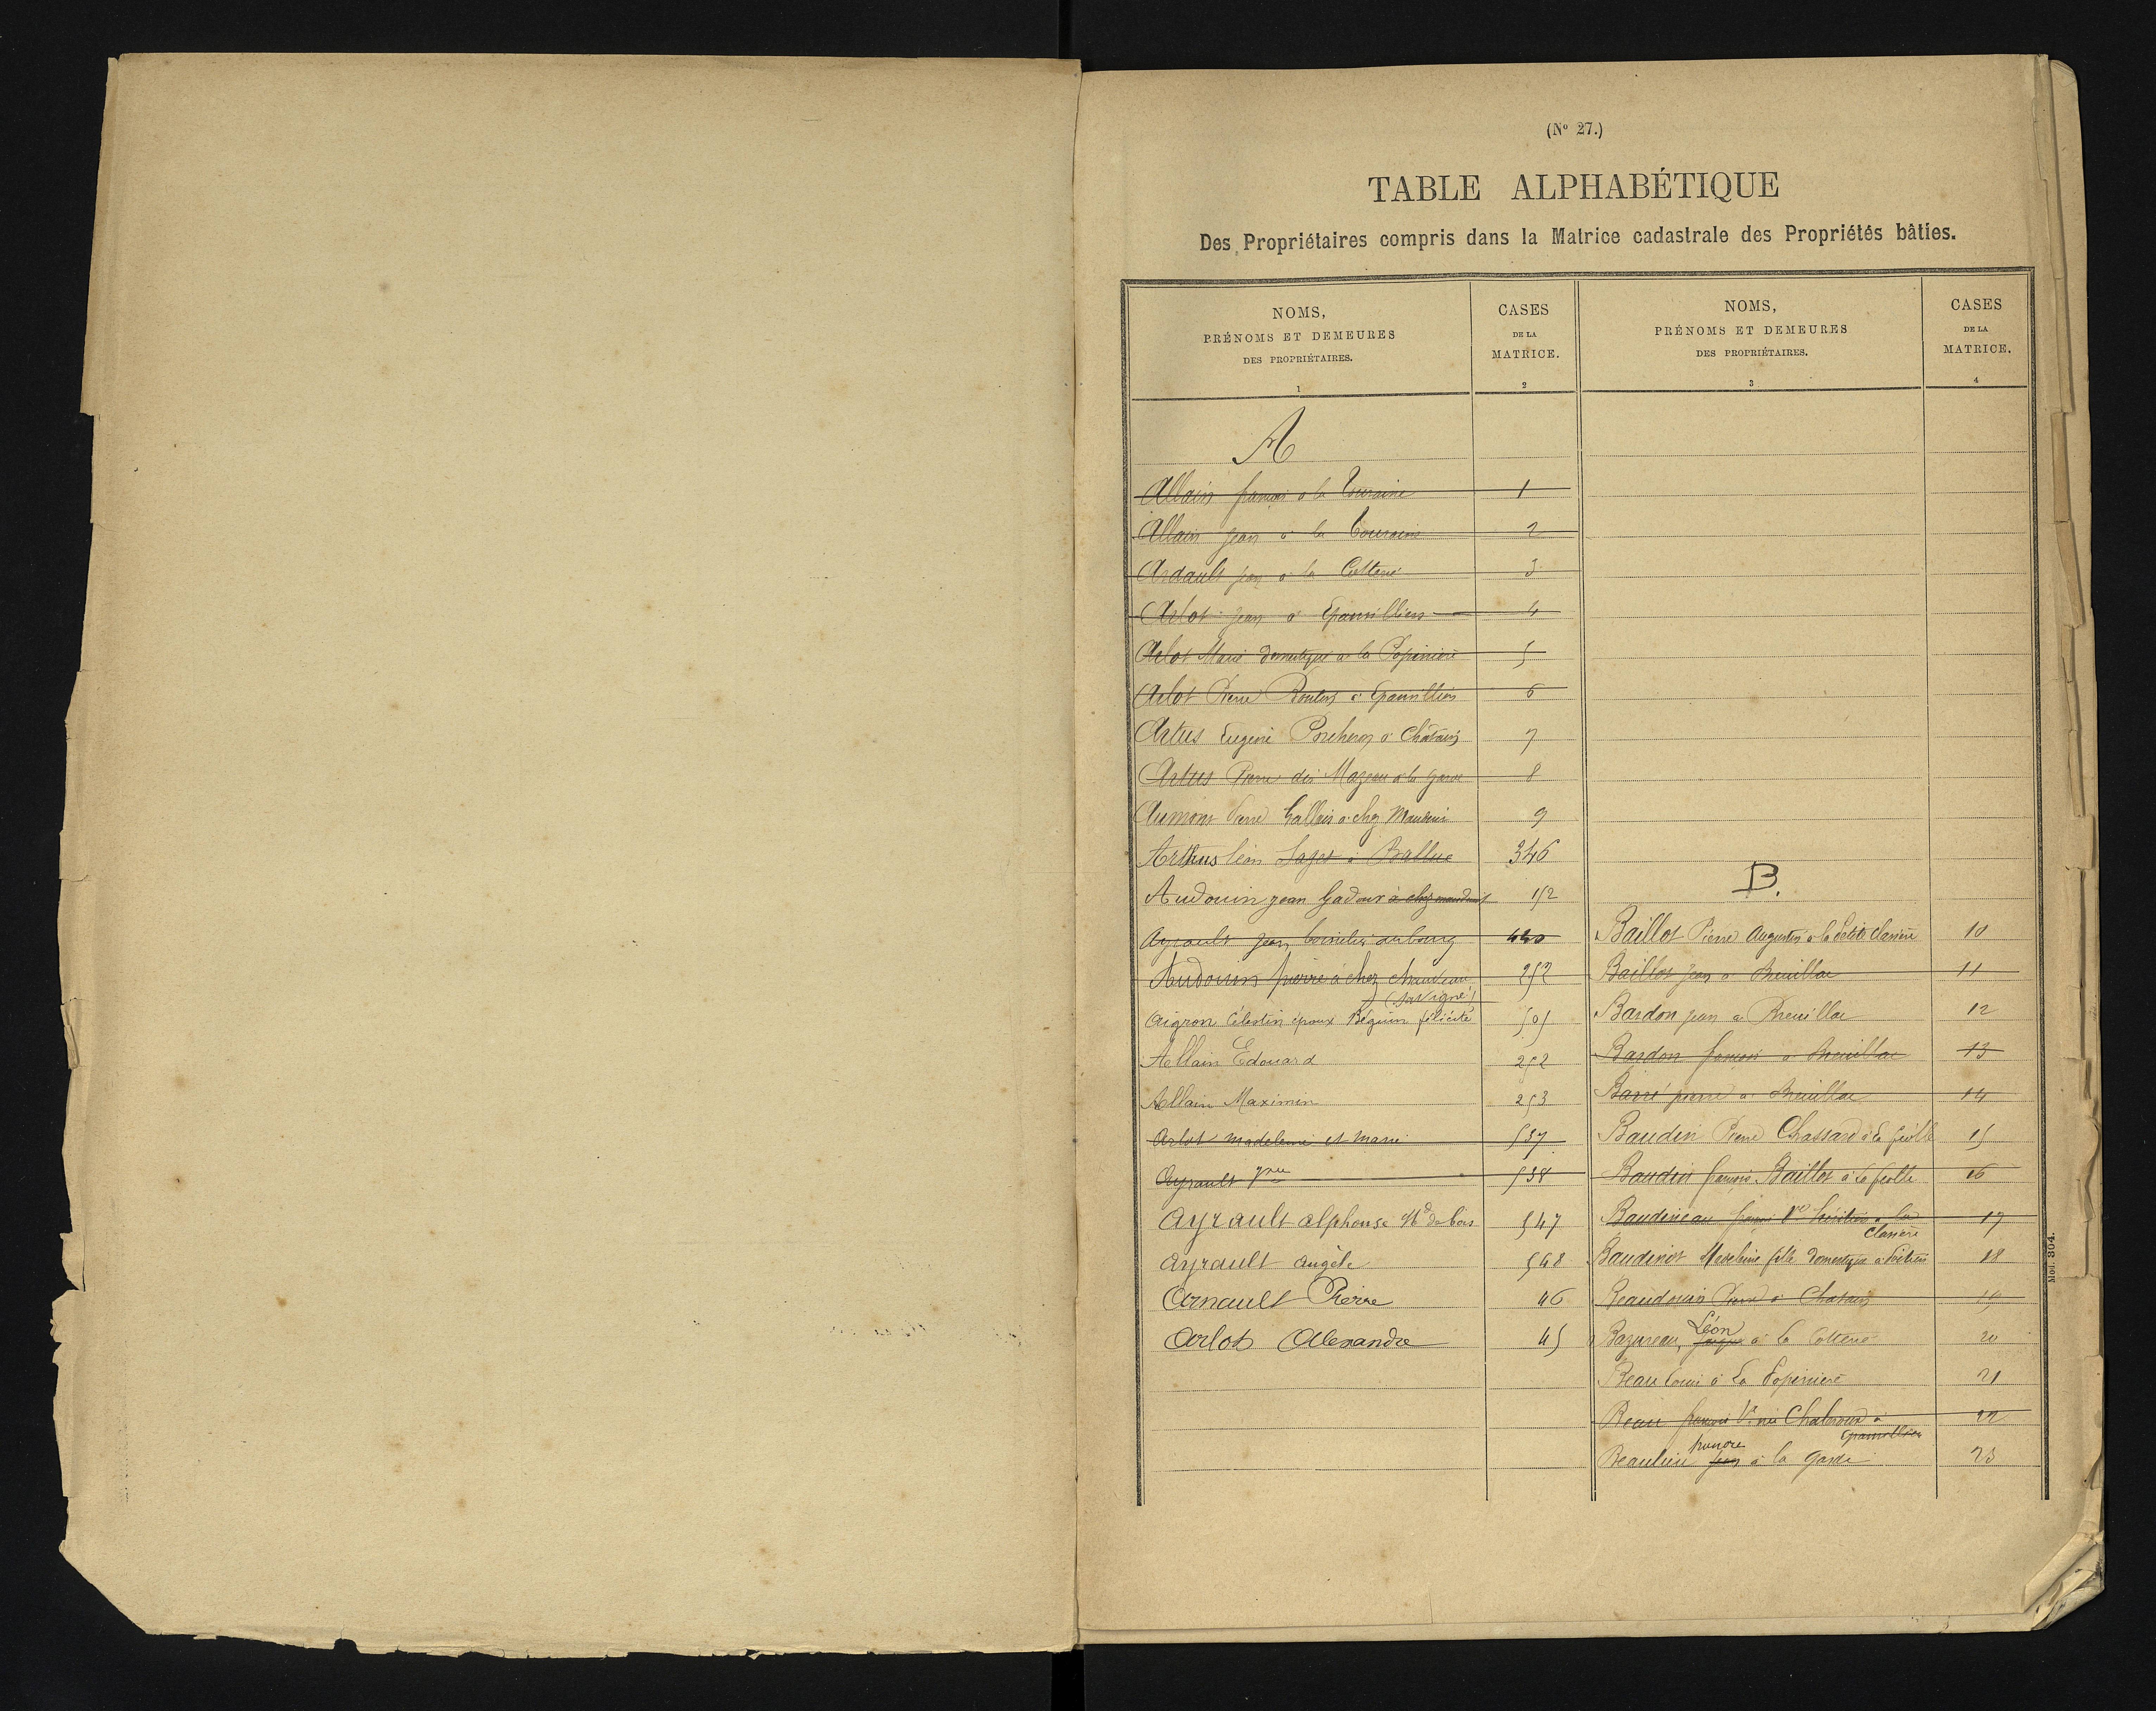 (Nº 27.)
TABLE ALPHABÉTIQUE
Des Propriétaires compris dans la Matrice cadastrale des Propriétés bâties.
NOMS,
PRÉNOMS ET DEMEURES
DES PROPRIÉTAIRES.
1
CASES
DE LA
MATRICE.
2
A
Allain françois à la Touraine 1
Allain Jean à la Touraine 2
Ardault Jean à la 3
Arlot Jean à Epanvilliers 4
Arlot Marie domestique à la Popinière 5
Arlot Pierre à Epanvilliers 6
Artus Eugène Porcheron à Chatain 7
Artus Pierre dit Mazeau à la Garde 8
Aumont Pierre Gallais à chez 9
Arthus léon Sazet à Ballue 346
Audouin jean Gadour à chez mauduit 152
Ayrault Jean au bourg 440
Audouin pierre à chez chauveau 252
(savigné)
Aigron Célestin époux Béguin félicité 505
Allain Edouard 252
Allain Maximin 253
Arlot madeleine et marie 537
Ayrault 538
Ayrault alphonse Md de bois 547
Ayrault angèle 548
Arnault Pierre 46
Arlot Alexandre 45
NOMS,
PRÉNOMS ET DEMEURES
DES PROPRIÉTAIRES.
3
CASES
DE LA
MATRICE.
4
B.
Baillot Pierre Augustin à la petite clavière 10
Baillot Jean à Breuillac 11
Bardon Jean à Breuillac 12
Bardon françois à Breuillac 13
Barré pierre à Breuillac 14
Baudin Pierre Chassard à la 15
Baudin françois Baillot à la 16
Baudineau Ve à la 17
clavière
Baudinot Madeleine fille domestique à 18
Beaudouin Pierre à Chatain 19
Léon
Bazureau, à la 20
Beau Louis à la Popinière 21
Beau françois Ve née à 22
Epanvilliers
honoré
Beaulieu Jean à la Garde 23
Mod. 304.